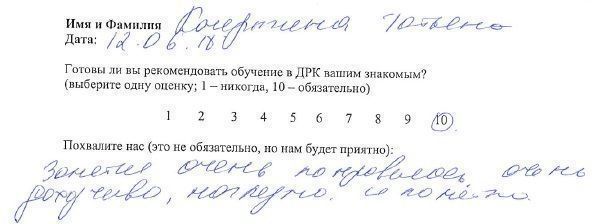 Имя и Фамилия Татьяна
Дата: 12.06.18
Готовы ли вы рекомендовать обучение в ДРК вашим знакомым?
(выберите одну оценку; 1 – никогда, 10 – обязательно)
1 2 3 4 5 6 7 8 9 10
Похвалите нас (это не обязательно, но нам будет приятно):
Занятие очень понравилось, очень
доходчиво, наглядно и понятно.